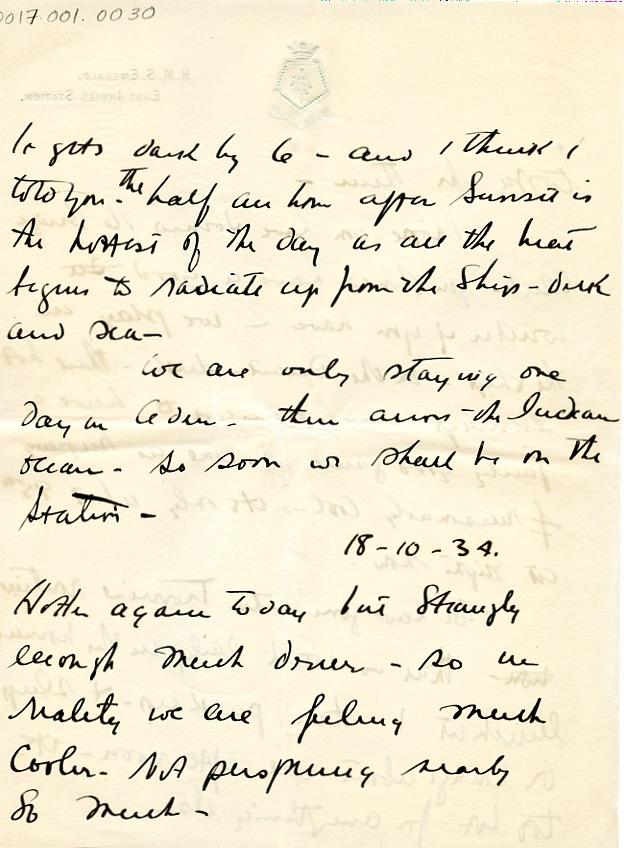 0017.001.0030
H.M.S. EMERALD.
EAST INDIES STATION.
It gets dark by 6 - and I think I
told you - the half an hour after Sunset is
the hottest of the day as all the heat
begins to radiate up from the Ships - deck
and sea -
We are only staying one
day in Aden - then across - the Indian
ocean - so soon we shall be on the
Station -
18-10-34.
Hotter again today but Strangly
enough much drier - so in
reality we are feeling much
Cooler - Not perspiring nearly
So much -